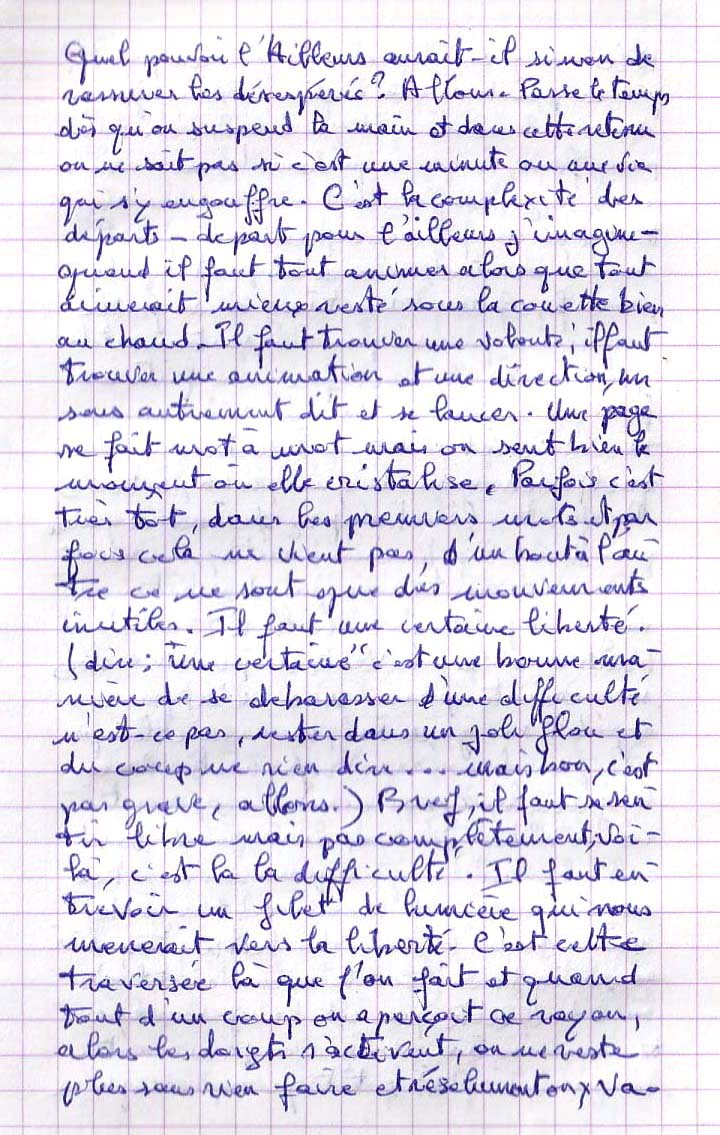 Quel pouvoir l'Ailleurs aurait-il sinon de
rassurer les désespérés? Allons. Passe le temps
dès qu'on suspend la main et dans cette retenue
on ne sait pas si c'est une minute ou une vie
qui s'y engouffre. C'est la complexité des
départs - départ pour l'ailleurs j'imagine -
quand il faut tout animer alors que tout
aimerait mieux resté sous la couette bien
au chaud. Il faut trouver une volonté, il faut
trouver une animation et une direction, un
sens autrement dit et se lancer. Une page
se fait mot à mot mais on sent bien le
moment où elle cristalise. Parfois c'est
très tôt, dans les premiers mots et par
fois cela ne vient pas, d'un bout à l'au
tre ce ne sont que des mouvements
inutiles. Il faut une certaine liberté.
(dire; "une certaine" c'est une bonne ma-
nière de se debarasser d'une difficulté
n'est-ce pas, rester dans un joli flou et
du coup ne rien dire... mais bon, c'est
pas grave, allons.) Bref, il faut se sen
tir libre mais pas complètement, voi-
là, c'est là la difficulté. Il faut en
trevoir un filet de lumière qui nous
menerait vers la liberté. C'est cette
traversée là que l'on fait et quand
tout d'un coup on aperçoit ce rayon,
alors les doigts s'activent, on ne reste
plus sans rien faire et résolument on y va.